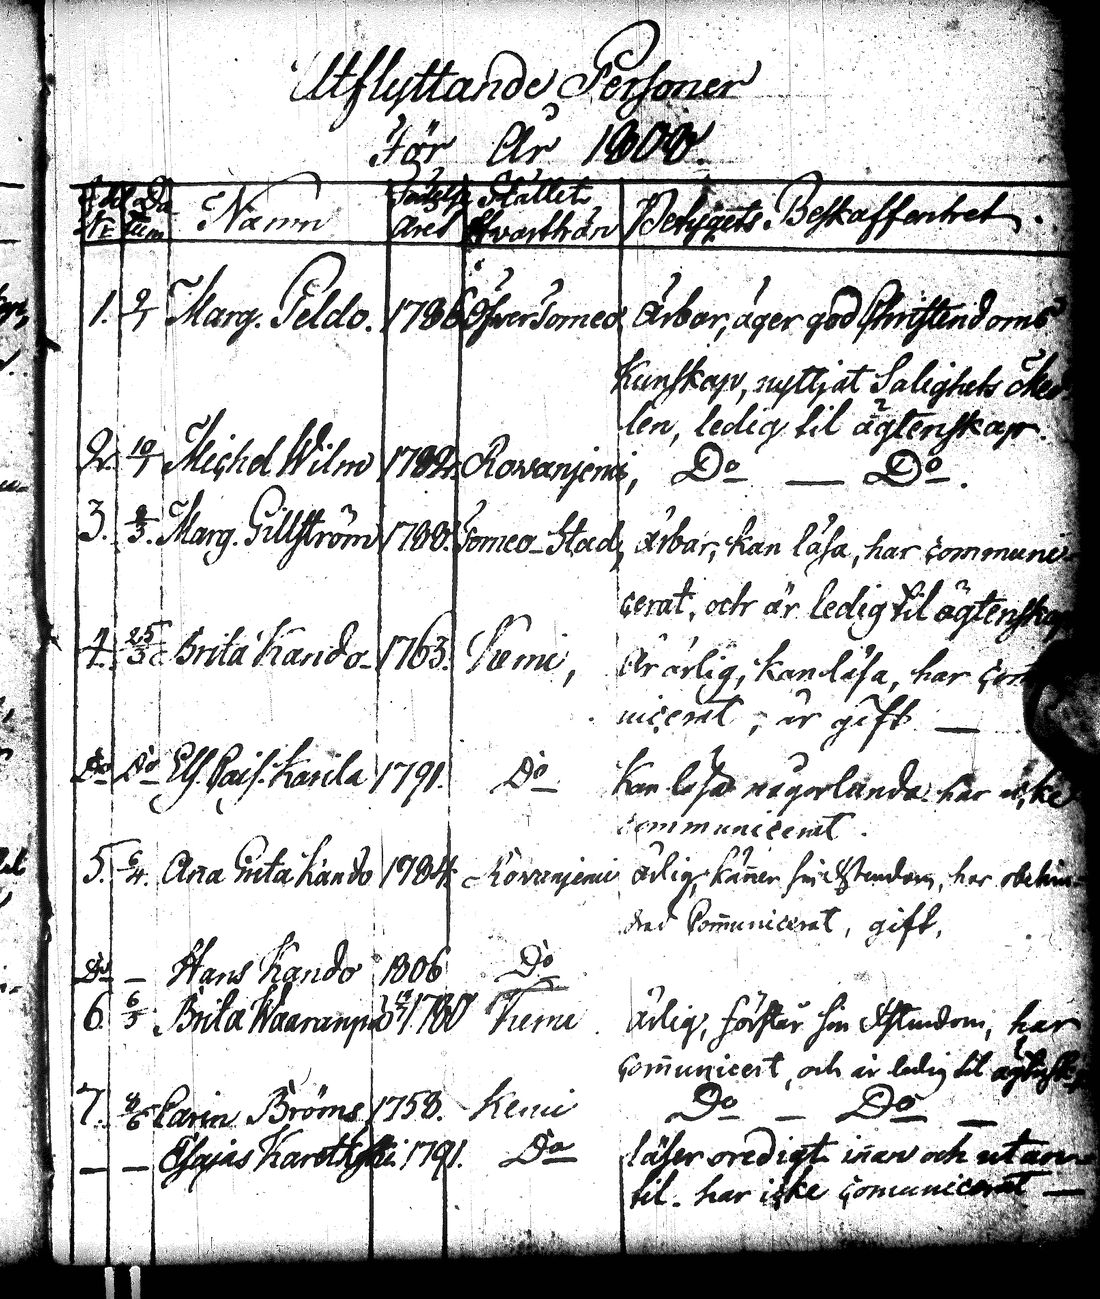 Utflyttande Personer
För År 1808.
Da tum Namn Födelse Året Stället Hvarthän Betygets Beskaffenhet.
1. 9/1 Marg. Peldo. 1786 Öfver Torneo Ärbar, äger god Christendoms
Kunskap, nyttjat Salighets
len, ledig til ägtenskap.
2. 10/1 Michel Wilm 1782. Rovanjemi, Do — Do.
3. Marg. Gillström 1788. Torneo Stad, Ärbar, kan läsa, har communi-
cerat, och är ledig til ägtenskap
4. 25/3 Brita Kando 1763. Kemi, Är ärlig, kan läsa, har com
nicerat, är gift —
Do Do Karila 1791. Do Kan läsa någorlunda har icke
communicerat.
5. 6/4. Ana Greta Kando 1784. Rovanjemi ärlig, käner sin Xstendom, har obehin-
drad Comunicerat, gift.
Do — Hans Kando 1806 Do
6. 6/5 Brita 1780 Kemi ärlig, förstår sin Xstendom, har
comunicert, och är ledig til ägtensk
7. 8/6 Carin Bröms 1758. Kemi Do — Do —
— — Esajas 1791. Do läser oredigt inan och utan
til. har icke comunicerat —